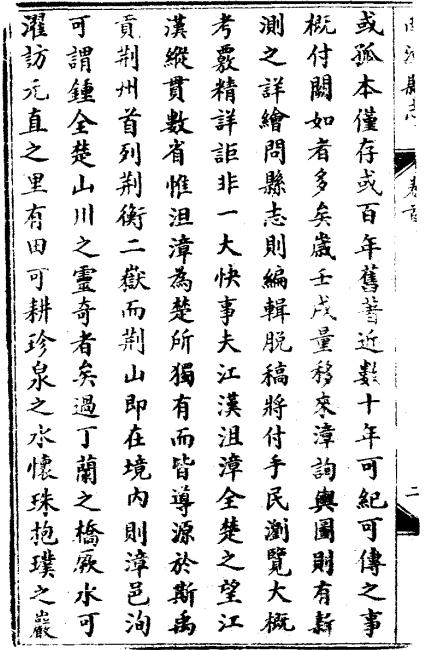 南漳縣志
卷首
二
或孤本僅存或百年舊著近數十年可紀可傳之事
概付闕如者多矣歲壬戌量移來漳詢輿圖則有新
測之詳繪問縣志則編輯脫稿將付手民瀏覽大概
考覈精詳詎非一大快事夫江漢沮漳全楚之望江
漢縱貫數省惟沮漳為楚所獨有而皆導源於斯禹
貢荆州首列荆衡二嶽而荆山即在境內則漳邑洵
可謂鍾全楚山川之靈奇者矣過丁蘭之橋厥水可
濯訪元直之里有田可耕珍泉之水懷珠抱璞之巖